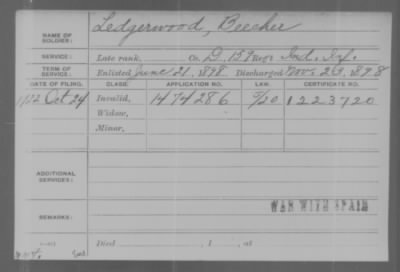 NAME OF SOLDIER: Ledgerwood, Beecher
SERVICE: Late rank, Co D, 159 Reg't Ind. Inf.
TERM OF SERVICE: Enlisted June 21, 1898. Discharged Nov. 23, 1898
DATE OF FILING. CLASS. APPLICATION NO. LAW. CERTIFICATE NO.
Oct 24 Invalid, 1474286 1223720
Widow,
Minor,
ADDITIONAL SERVICES:
WAR WITH SPAIN
REMARKS:
Died , 1 , at